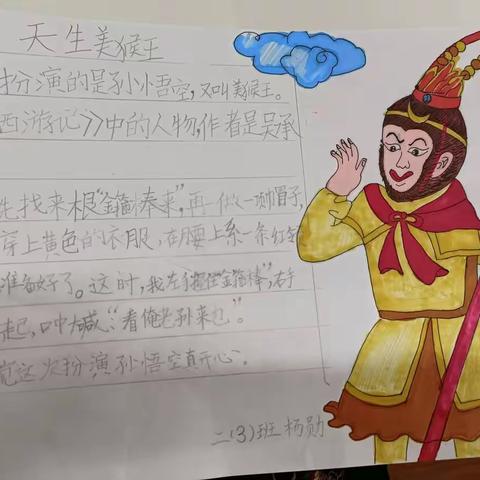 天生美猴王
扮演的是孙小悟空,又叫美猴王。
西游记》中的人物,作者是吴承
先找来根"金箍棒来",再做一顶帽子,
穿上黄色的衣服,在腰上系一条红
准备好了。这时,我左手握住"金箍棒",右手
起,口中大喊:"看俺老孙来也"。
觉这次扮演孙悟空真开心。
二(3)班 杨勋